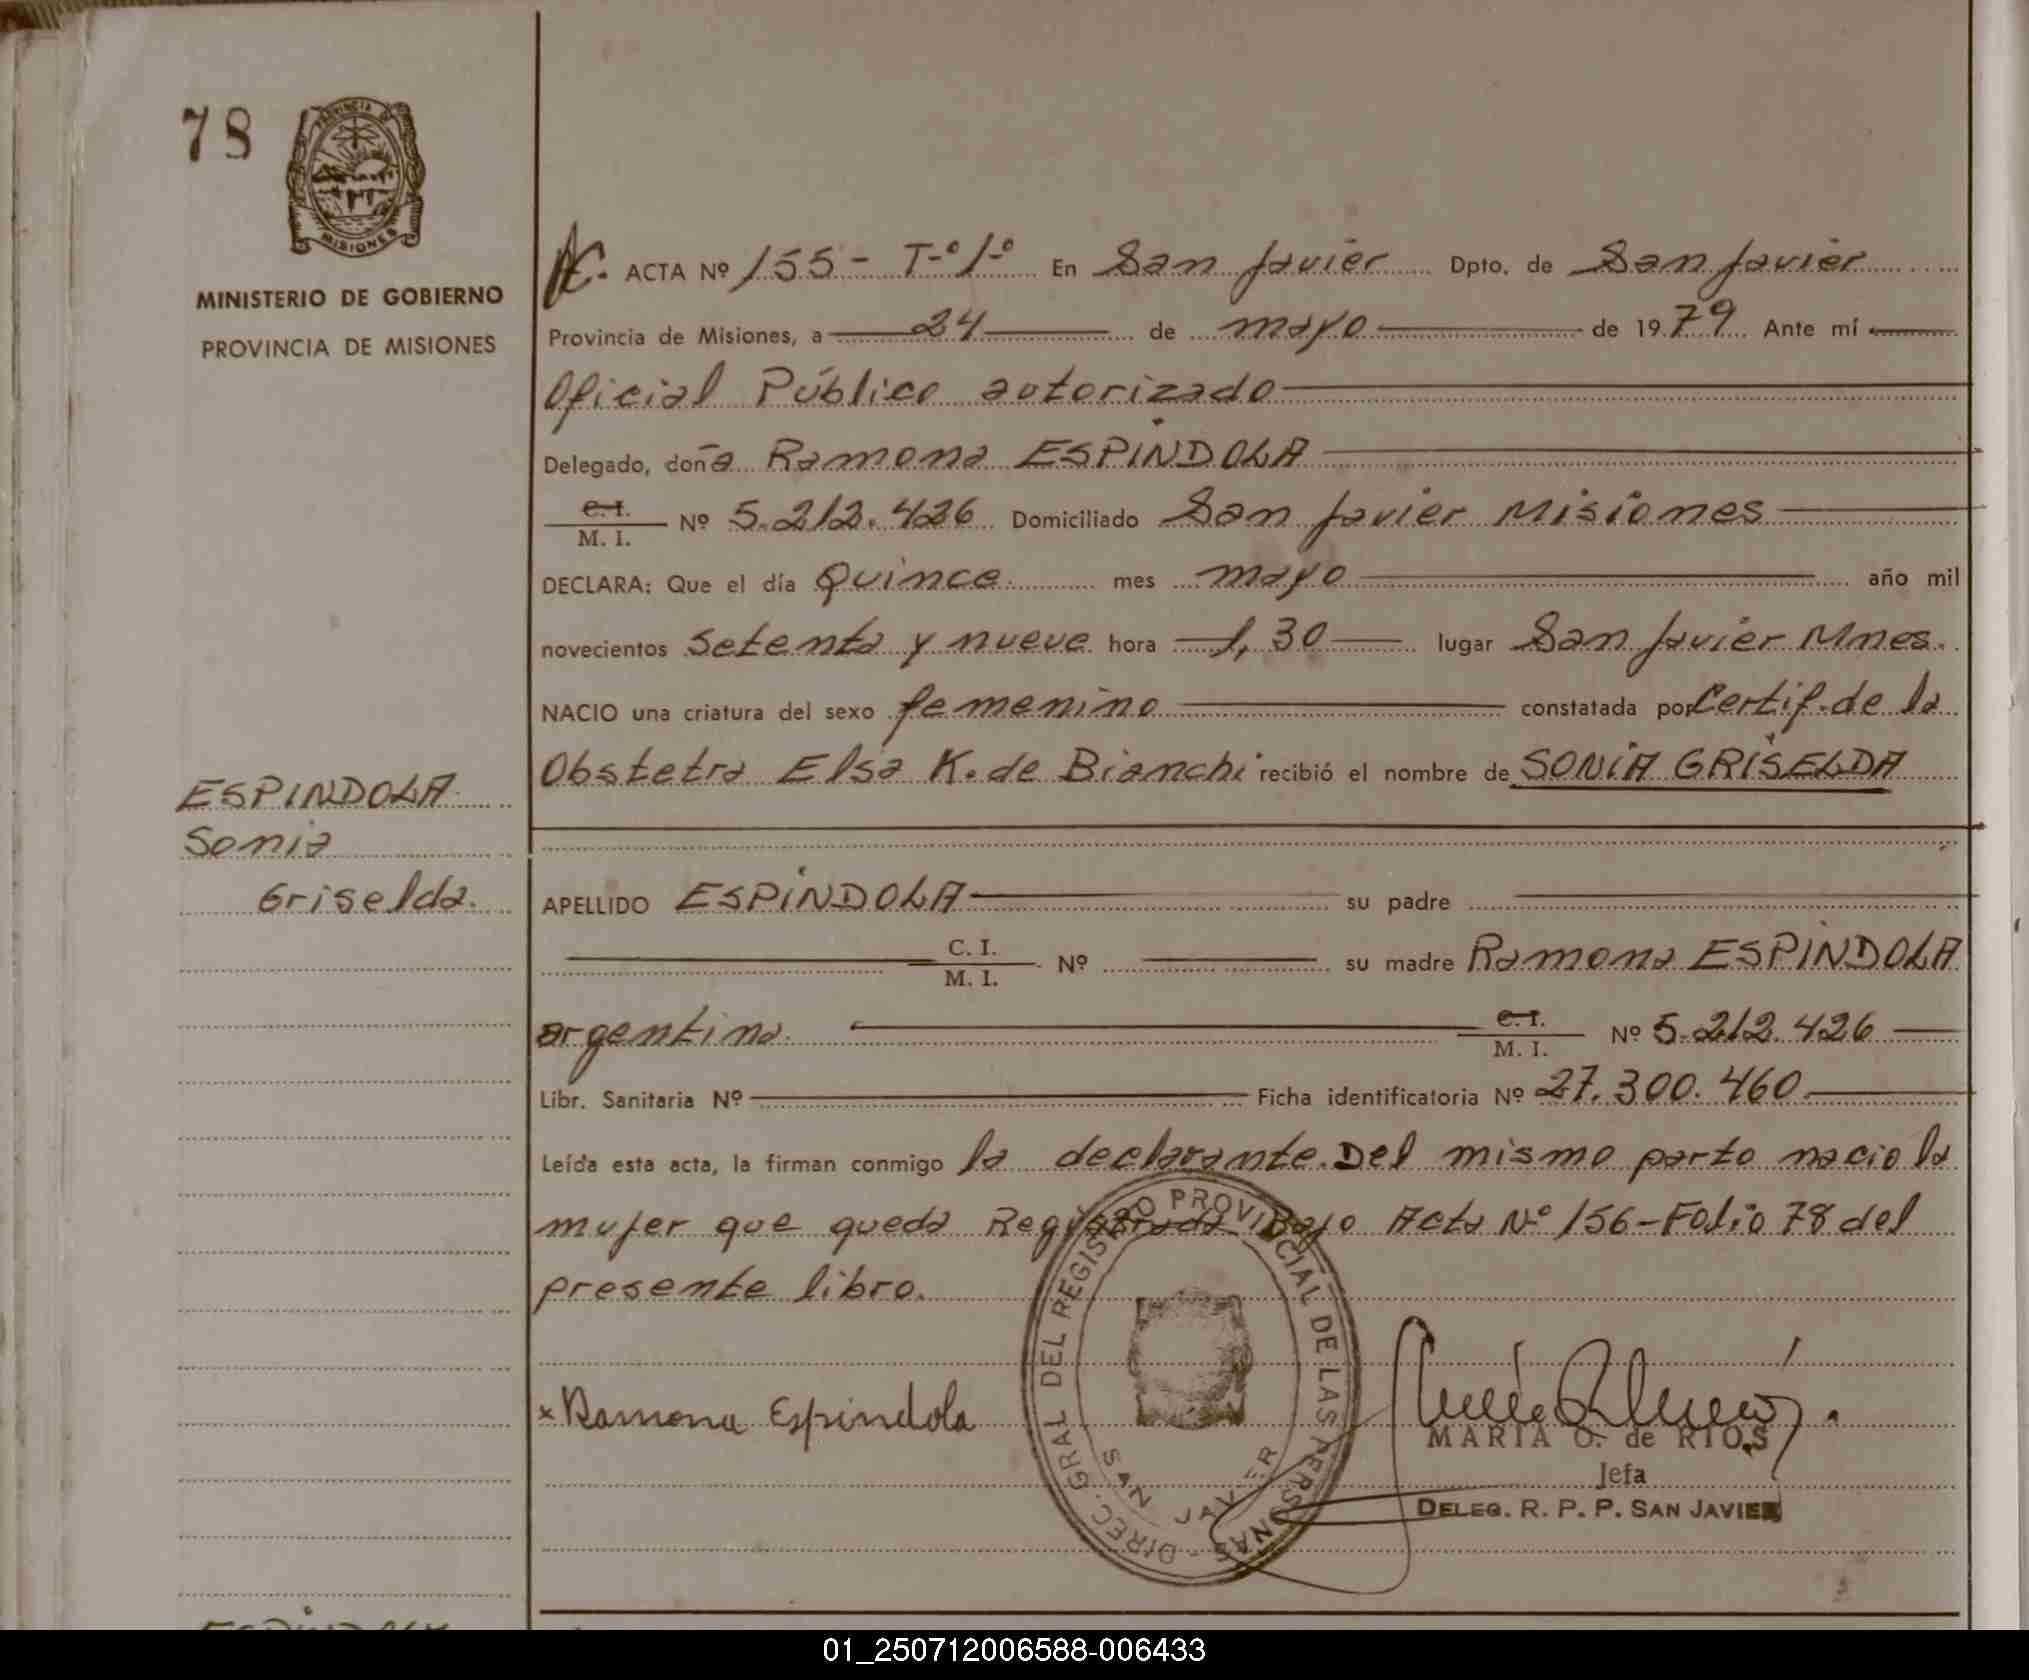 78
PROVINCIA DE
MISIONES
MINISTERIO DE GOBIERNO
PROVINCIA DE MISIONES
ESPINDOLA
Sonia
Griselda.
ACTA Nº 155- T-º1-º En San Javier Dpto. de San Javier
Provincia de Misiones, a 24 de mayo de 1979 Ante mí
Oficial Público autorizado
Delegado, doña Ramona ESPINDOLA
C. I.
M. I. Nº 5.212.426 Domiciliado San Javier Misiones
DECLARA: Que el día Quince mes mayo año mil
novecientos Setenta y nueve hora 1,30 lugar San Javier Mnes.
NACIO una criatura del sexo femenino constatada por Certif. de la
Obstetra Elsa K. de Bianchi recibió el nombre de SONIA GRISELDA
APELLIDO ESPINDOLA su padre
C. I.
M. I. Nº su madre Ramona ESPINDOLA
argentina. C. I.
M. I. Nº 5.212.426
Libr. Sanitaria Nº Ficha identificatoria Nº 27.300.460
Leída esta acta, la firman conmigo la declarante. Del mismo parto nacio la
mujer que queda Registrada Bajo Acta Nº 156-Folio 78 del
presente libro.
x Ramona Espindola
DIREC. GRAL DEL REGISTRO PROVINCIAL DE LAS PERSONAS -
SAN JAVIER
MARIA O. de RIOS
Jefa
DELEG. R. P. P. SAN JAVIER
01_250712006588-006433